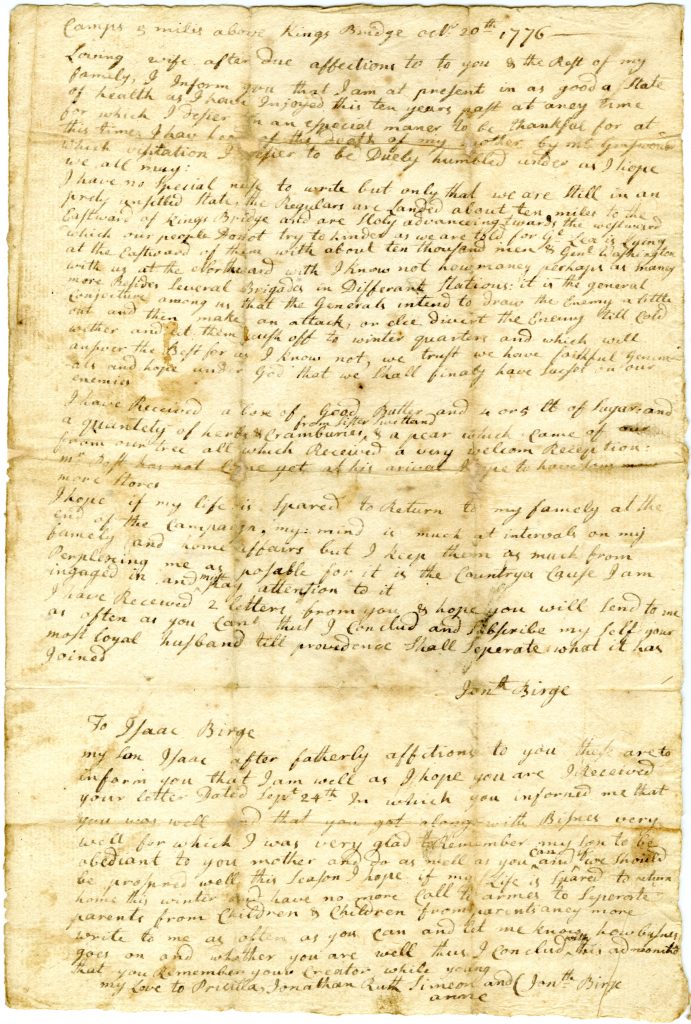 Camps 5 miles above Kings Bridge octr 20th 1776
Loving wife after due affections to to you & the Rest of my
family, I Inform you that I am at present in as good a State
of health as I have Injoyed this ten years past at aney time
for which I desier in an especial maner to be thankful for at
this time I hav of the death of my mother by mr
which visitation I desier to be Duely humbled under as I hope
we all may:
I have no Special nuse to write but only that we are still in an
unsettled State, the Regulars are Landed about ten miles to the
Eastward of Kings Bridge and are Sloly advanceing towards the westward
which our people Donot try to hinder as we are told for Gel Lea is Lying
at the Eastward of them with about ten thousand men & Genl Washington
with us at the Northward with I know not how maney perhaps as maney
more Besides Several Brigades in Different Stations: it is the general
Conjecture among us that the Generals intend to draw the Enemy a little
out and then make an attack, or else divert the Enemy till Cold
wether and let them off to winter quarters and which will
answer the Best for as I know not, we trust we have faithful Gener
als and hope under God that we Shall finaly have on our
enemies
I have Received a box of Good Butter and 4 or 5 lt of Sugar and
a quantety of herbs & Cramburies from Sister Swetland & a pear which Came of our
from our tree all which Received a very welcom Reception:
mr has not Come yet at his arival I hope to have Som more
more Stores
I hope if my life is Spared to Return to my famely at the
end of the Campaign, my mind is much at intervals on my
famely and home affairs but I keep them as much from
Perplexing me as posable for it is the Countryes Cause I am
ingaged in and must pay attention to it
I have Received 2 letters from you & hope you will Send to me
as often as you Can thus I Conclud and Subscribe my self your
most loyal husband till providence Shall Seperate what it has
Joined
Jonth Birge
To Isaac Birge
my Son Isaac after fatherly affections to you these are to
inform you that I am well as I hope you are I Received
your letter Dated Sept 24th In which you informed me that
you was well and that you got along with Bisnes very
well for which I was very glad Remember my Son to be
obediant to you mother and do as well as you Can and if we Should
be prospred well this Season I hope if my Life is Spared to return
home this winter and have no more Call to armes to Seperate
parents from Children & Children from parents aney more
write to me as often as you Can and let me know how
goes on and whether you are well thus I Conclud with this
that you Remember your Creator while young
my Love to Priscilla, Jonathan Ruth Simeon and anne Jonth Birge